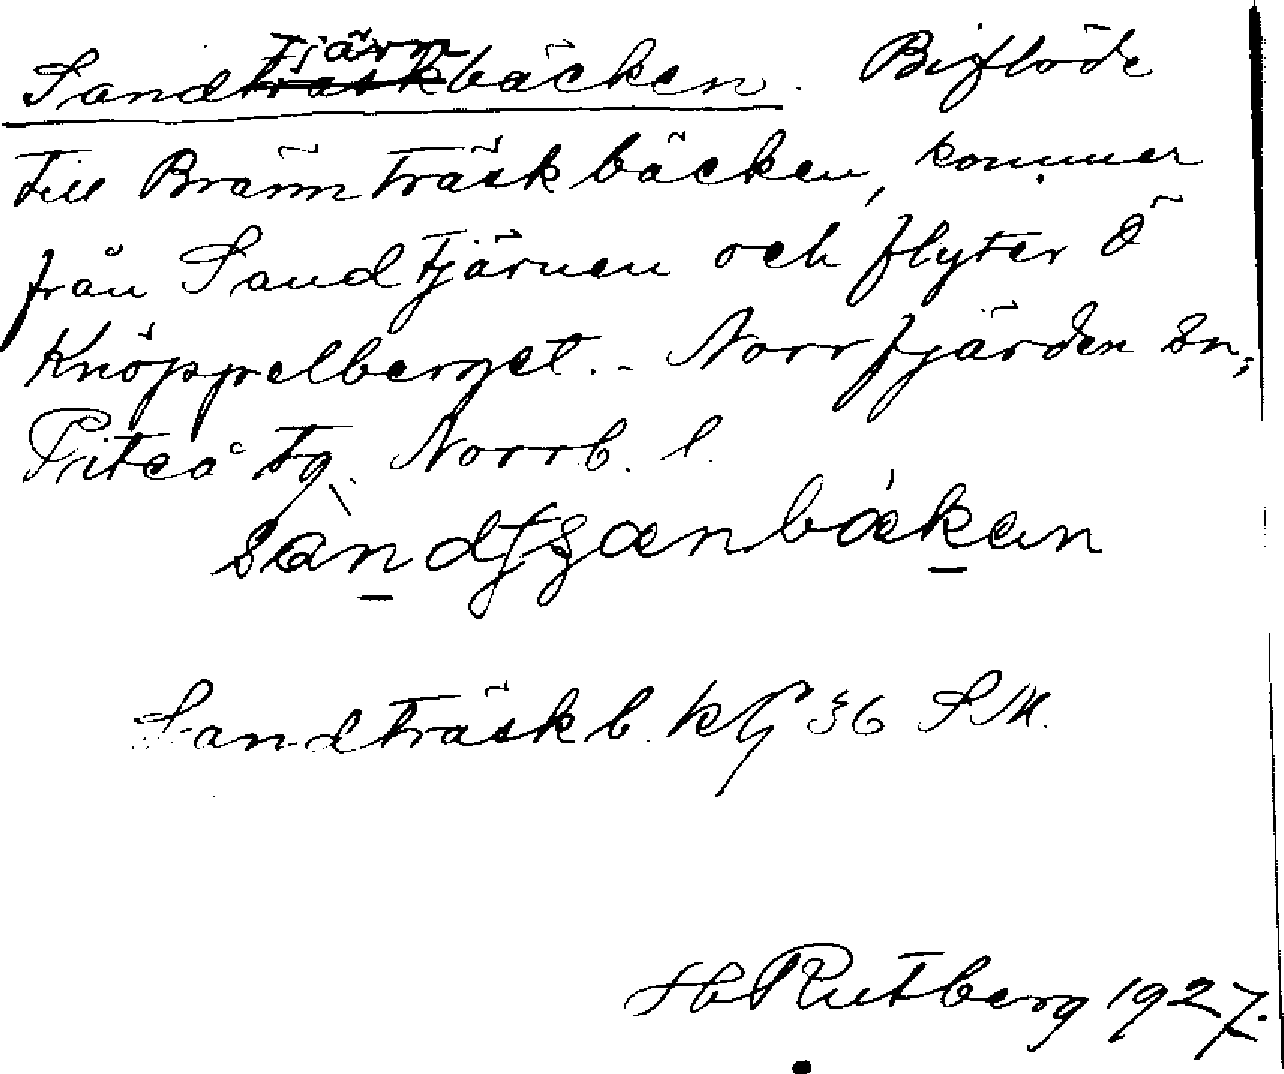 Sandtjärnbäcken. Biflöde
till Brännträskbäcken, kommer
från Sandtjärnen och flyter Ö
Knöppelberget.- Norrfjärden sn;
Piteå tg. Norrb. l.
Sandträskb. kg 36 SM.
H Rutberg 1927.